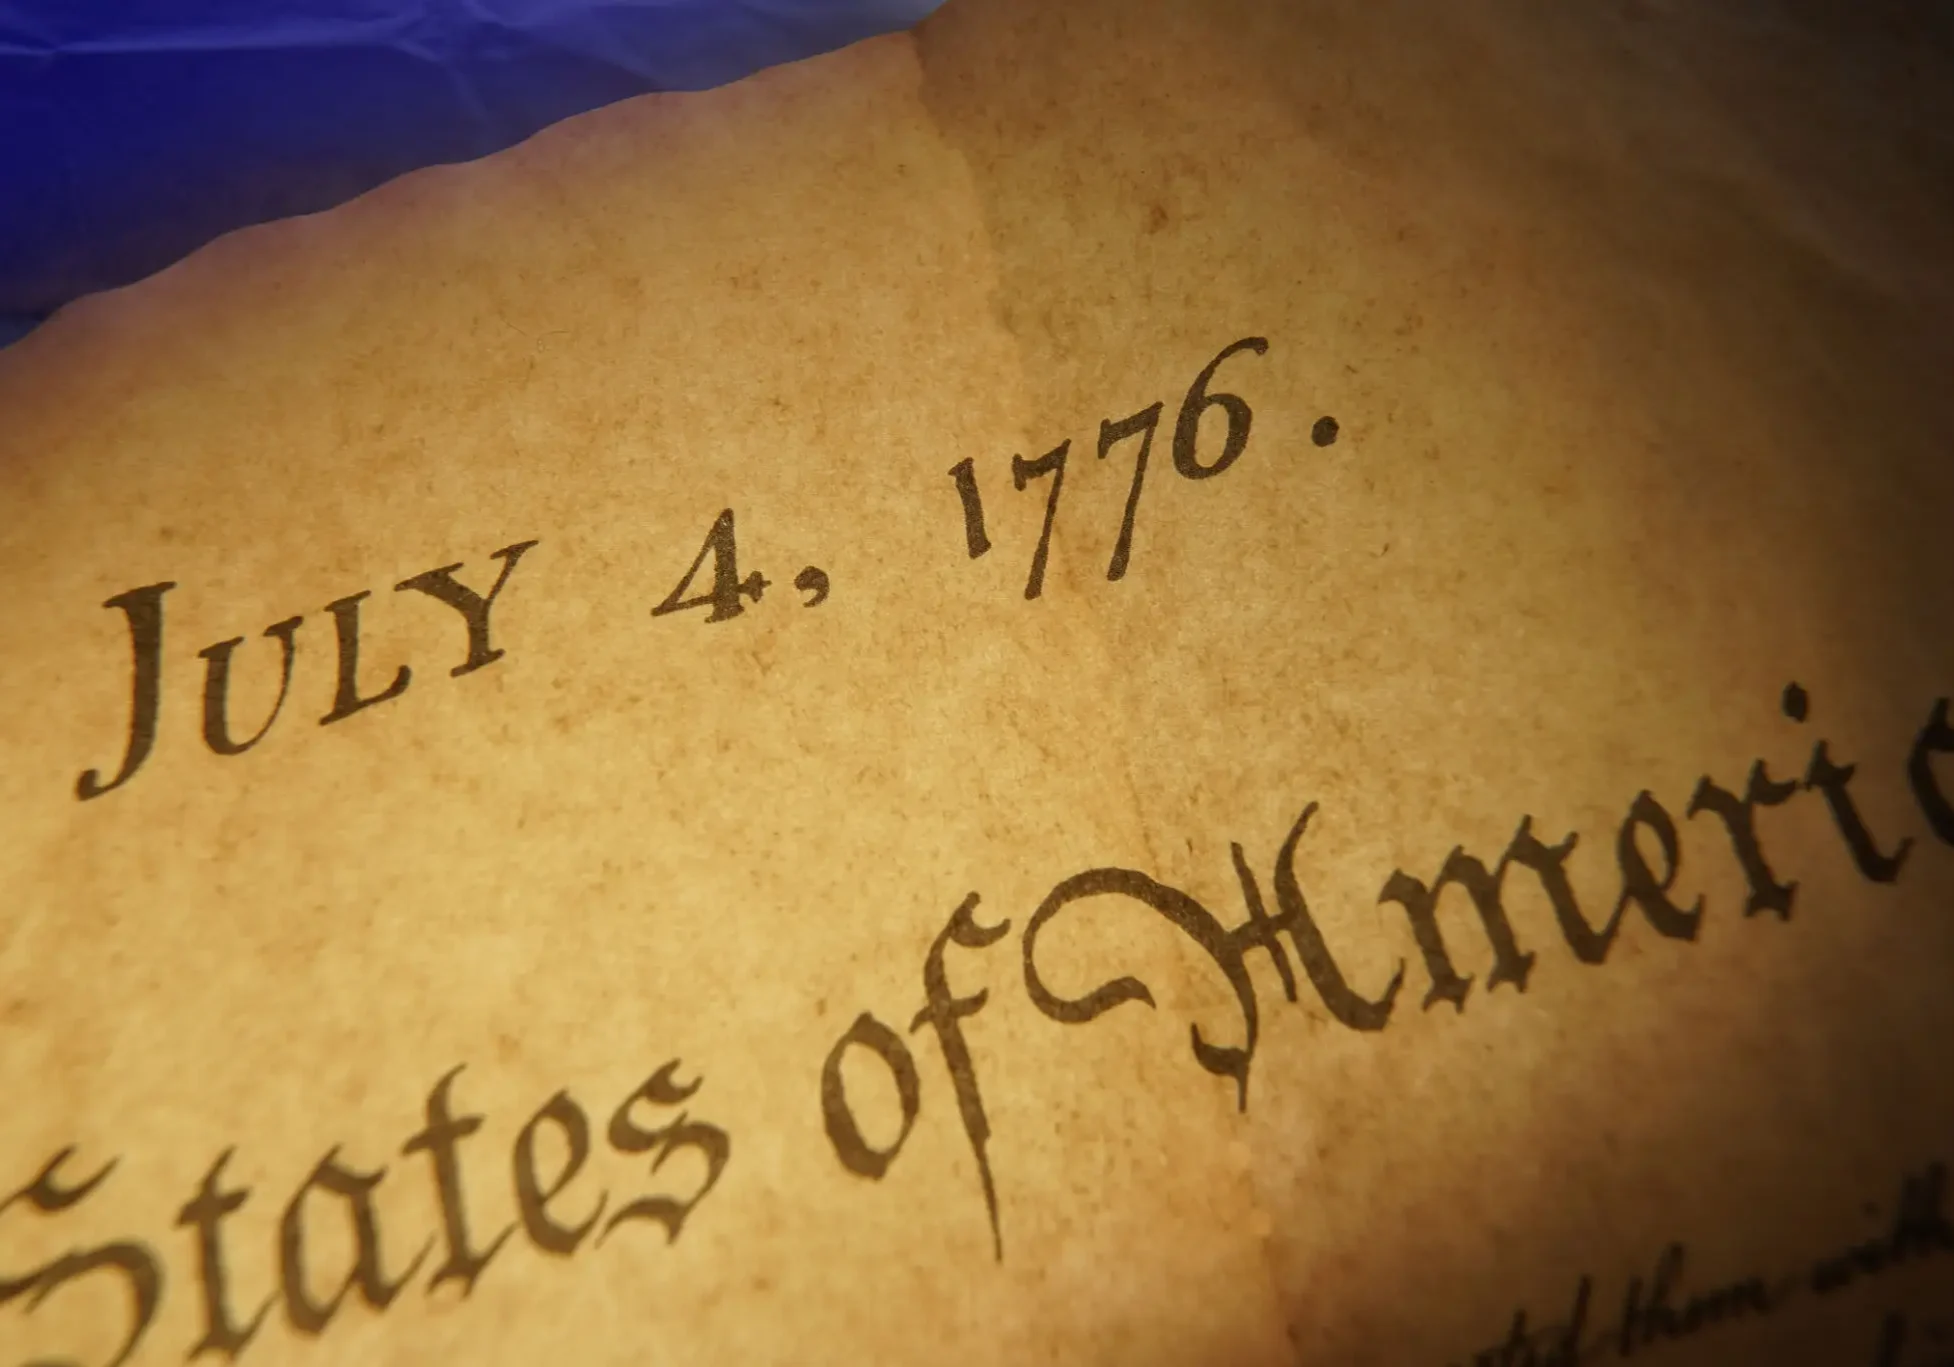 JULY 4, 1776.
States of Americ
them with